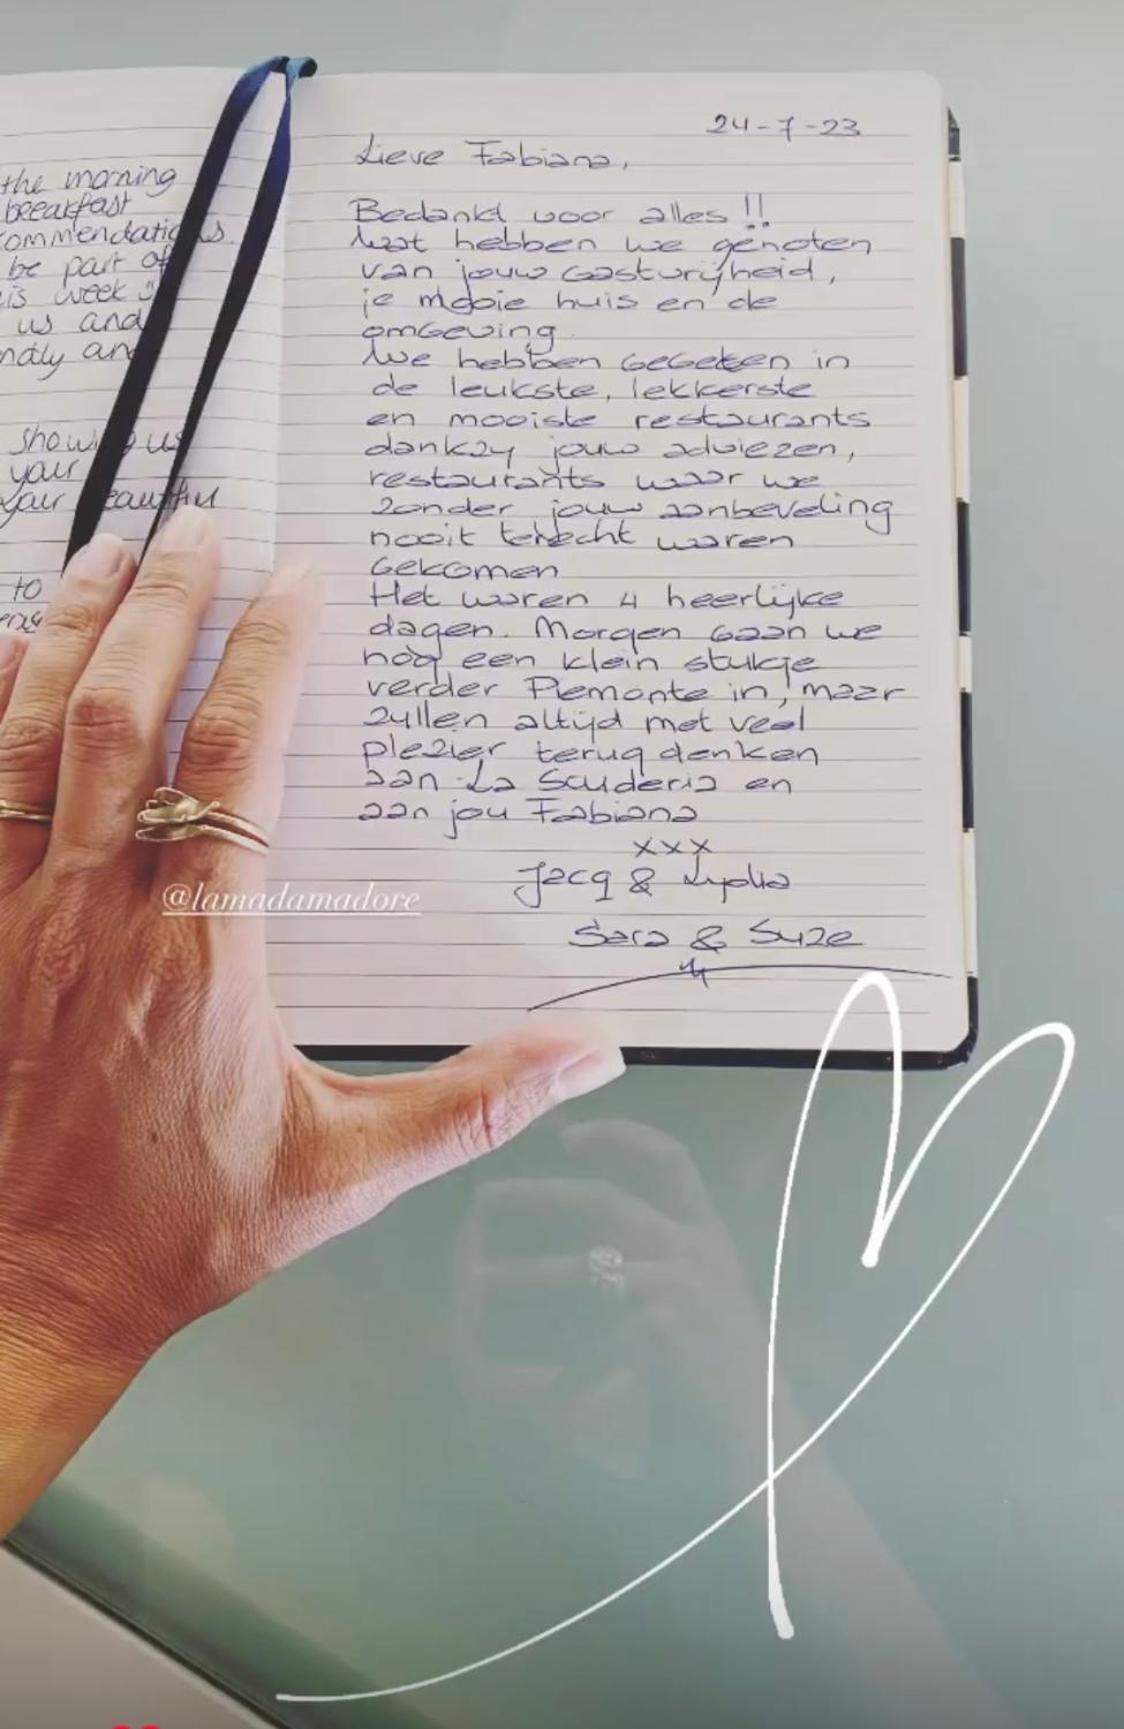 the morning
breakfast
commendations.
be part of
is week :)
us and
ndly and
showing us
your
your beautiful
to
24-7-23
Lieve Fabiana,
Bedankt voor alles!!
Wat hebben we genoten
van jouw gastvrijheid,
je mooie huis en de
omgeving.
We hebben gegeten in
de leukste, lekkerste
en mooiste restaurants
dankzy jouw adviezen,
restaurants waar we
zonder jouw aanbeveling
nooit terecht waren
gekomen
Het waren 4 heerlijke
dagen. Morgen gaan we
nog een klein stukje
verder Piemonte in, maar
zullen altijd met veel
plezier terug denken
aan La Scuderia en
aan jou Fabiana
xxx
Jacq & Lydia
@lamadamadore
Sara & Suze